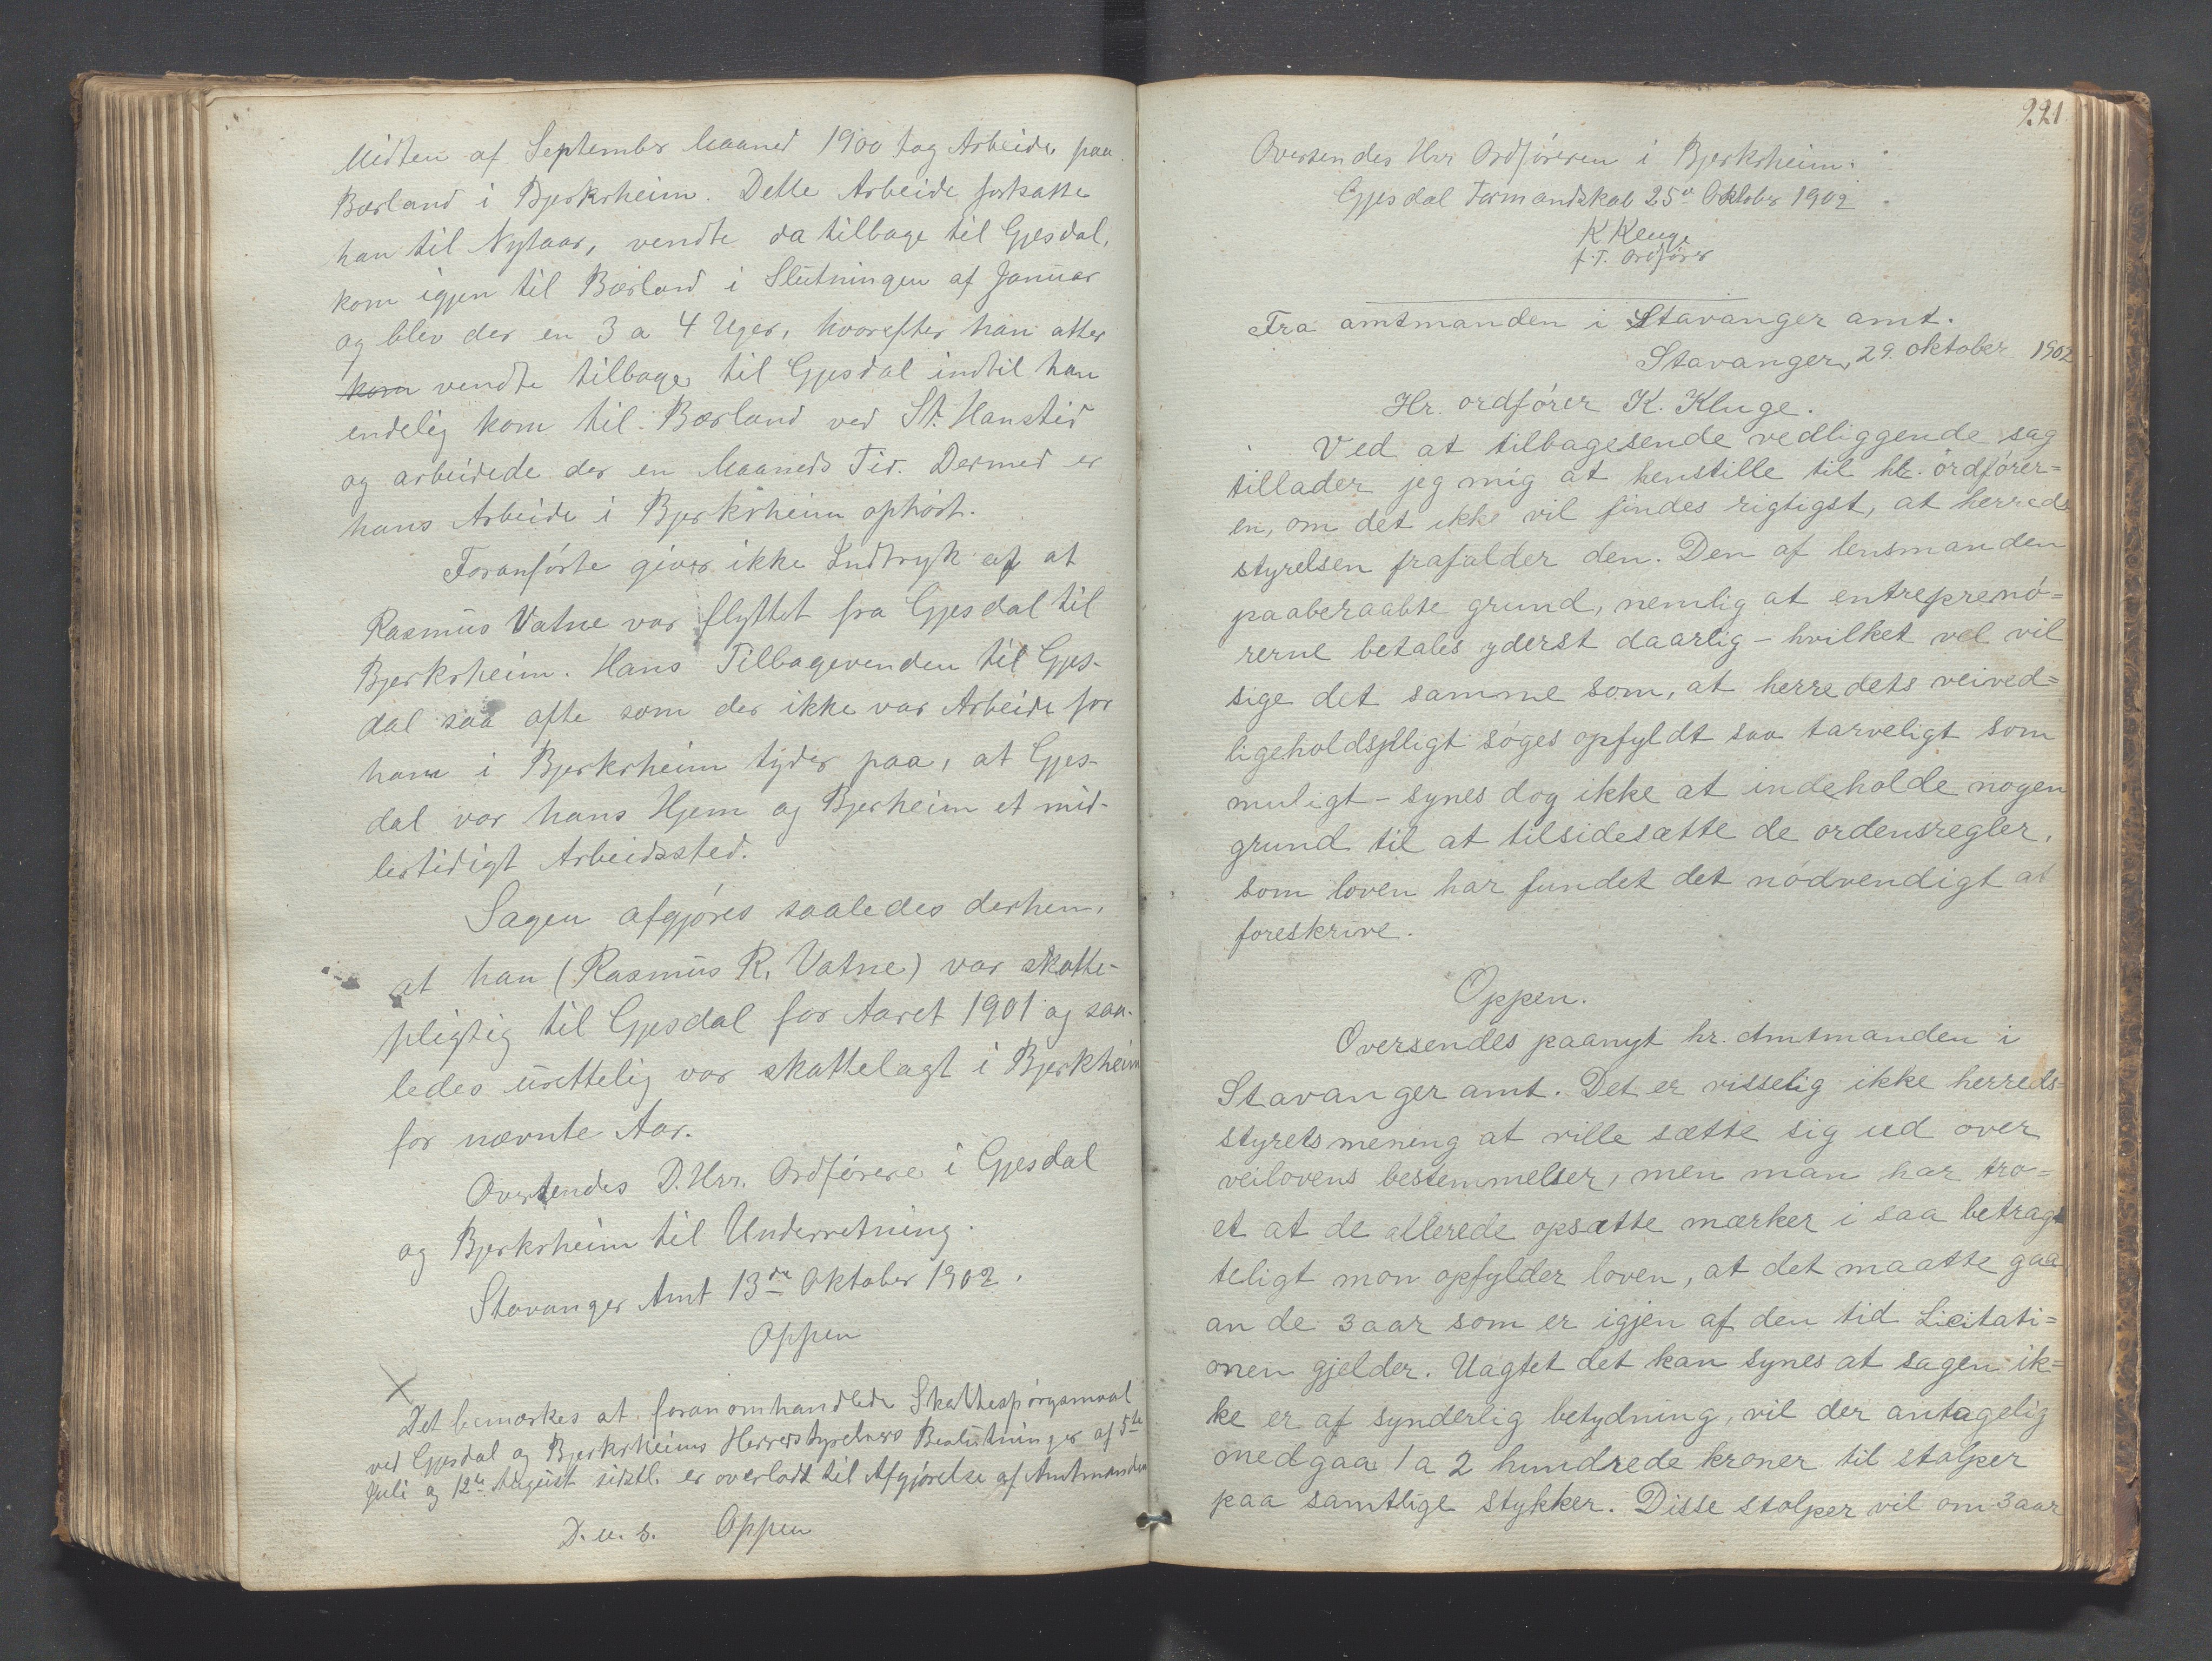 Midten af September Maaned 1900 tog Arbeide paa
Bærland i Bjerkrheim. Dette Arbeide fortsatte
han til Nytaar, vendte da tilbage til Gjesdal,
kom igjen til Bærland i Slutningen af Januar
og blev der en 3 a 4 Uger, hvorefter han atter
kom vendte tilbage til Gjesdal indtil han
endelig kom til Bærland ved St. Hanstid
og arbeidede der en Maaneds Tid. Dermed er
hans Arbeide i Bjerkrheim ophørt.
Foranførte giver ikke Indtryk af at
Rasmus Vatne var flyttet fra Gjesdal til
Bjerkrheim. Hans Tilbagevenden til Gjes-
dal saa ofte som der ikke var Arbeide for
ham i Bjerkrheim tyder paa, at Gjes-
dal var hans Hjem og Bjerheim et mid-
lertidigt Arbeidssted.
Sagen afgjøres saaledes derhen,
at han (Rasmus R. Vatne) var skatte-
pligtig til Gjesdal for Aaret 1901 og saa-
ledes urettelig var skattelagt i Bjerkheim
for nævnte Aar.
Oversendes D.Hrr. Ordførere i Gjesdal
og Bjerkrheim til Underretning.
Stavanger Amt 13de Oktober 1902.
Oppen
X
Det bemærkes at foranomhandlede Skattespørgsmaal
ved Gjesdal og Bjerkrheims Herredsstyrelsers Beslutninger af 5te
Juli og 12te August sidstl. er overladt til Afgjørelse af Amtmanden
D. u. s. Oppen
221
Oversendes Hrr Ordføreren i Bjerkrheim.
Gjesdal Formandskab 25de Oktober 1902
K Kluge
f.T. Ordfører
Fra amtmanden i Stavanger amt.
Stavanger, 29. oktober 1902
Hr. ordfører K. Kluge.
Ved at tilbagesende vedliggende sag
tillader jeg mig at henstille til hr. ordfører=
en, om det ikke vil findes rigtigst, at herreds
styrelsen frafalder den. Den af lensmanden
paaberaabte grund, nemlig at entreprenø=
rerne betales yderst daarlig - hvilket vel vil
sige det samme som, at herredets veived=
ligeholdspligt søges opfyldt saa tarveligt som
muligt - synes dog ikke at indeholde nogen
grund til at tilsidesætte de ordensregler,
som loven har fundet det nødvendigt at
foreskrive.
Oppen.
Oversendes paanyt hr. Amtmanden i
Stavanger amt. Det er visselig ikke herreds=
styrets mening at ville sætte sig ud over
veilovens bestemmelser, men man har tro=
et at de allerede opsatte mærker i saa betrag
teligt mon opfylder loven, at det maatte gaa
an de 3 aar som er igjen af den tid Licitati=
onen gjelder. Uagtet det kan synes at sagen ik=
ke er af synderlig betydning, vil der antagelig
medgaa 1 a 2 hundrede kroner til stolper
paa samtlige stykker. Disse stolper vil om 3 aar